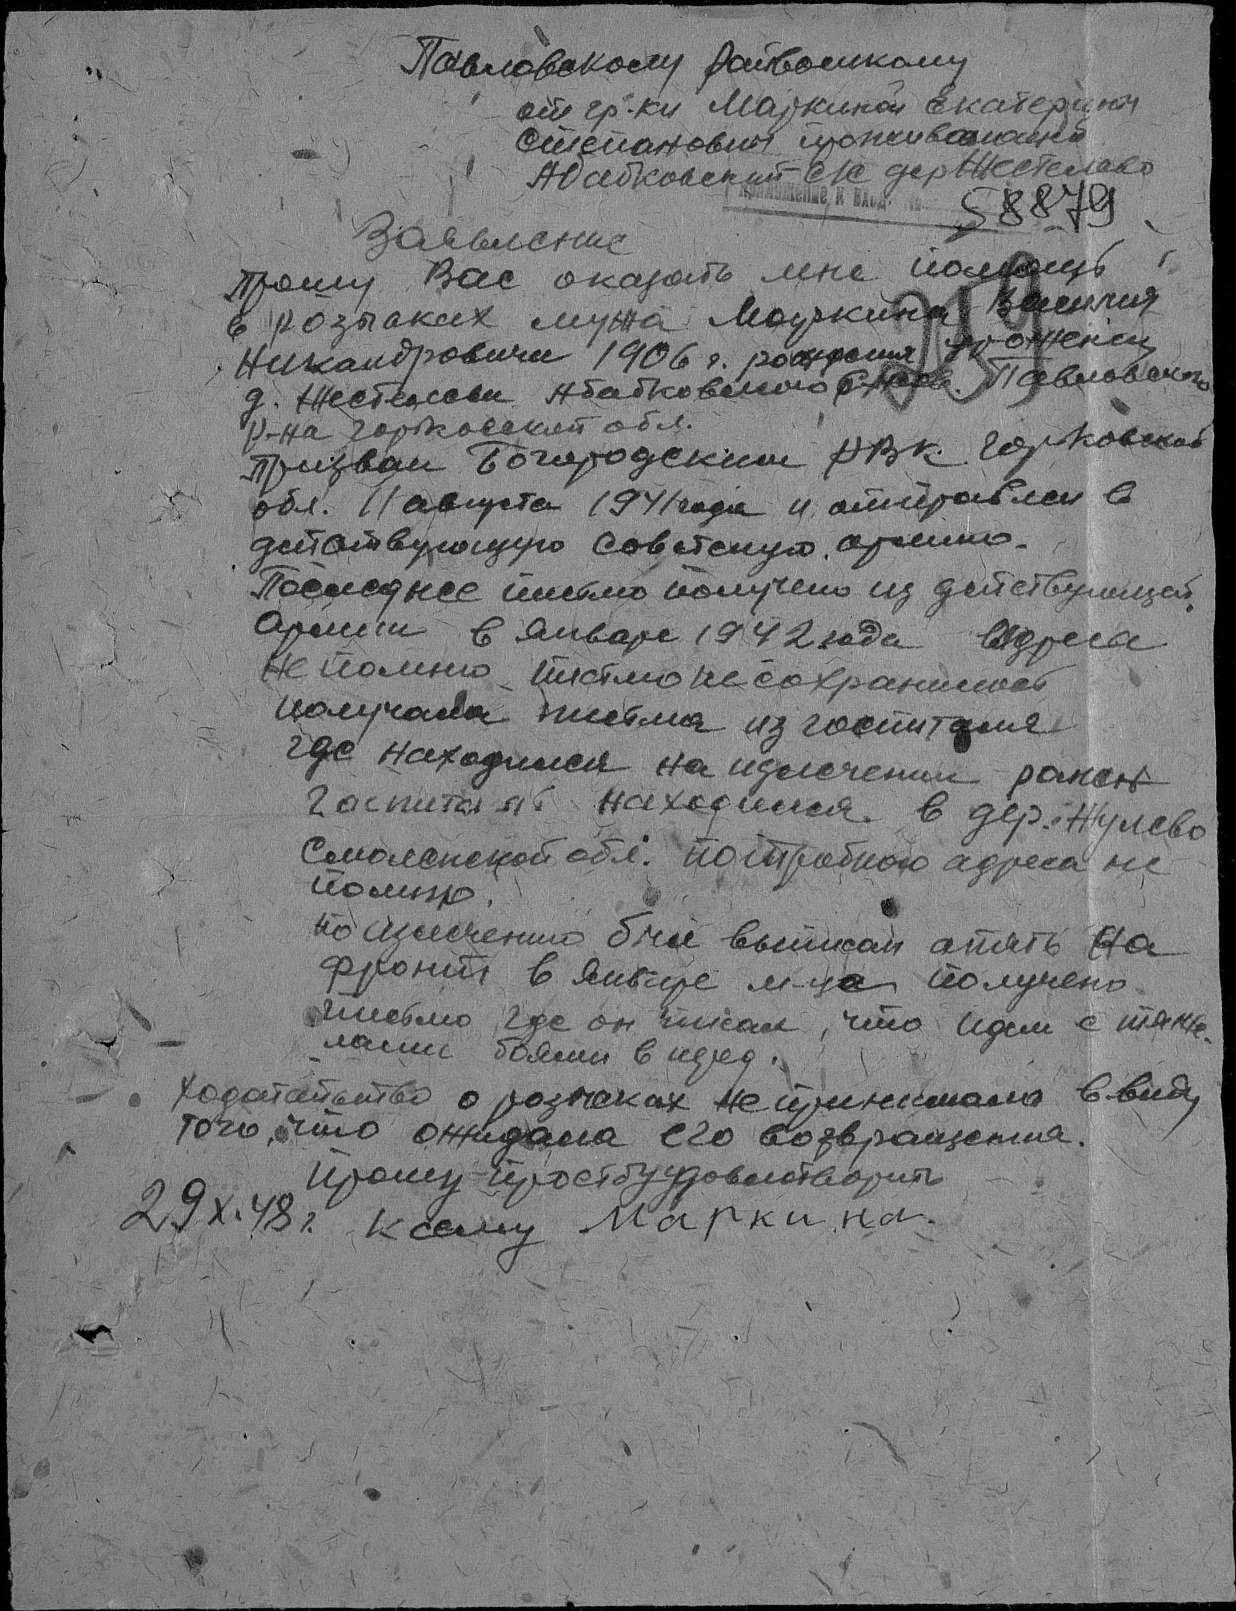 Павловскому райвоенкому
от гр-ки Маркиной Екатерины
Степановны проживающей
Абабковский с/с дер Жестелево
Приложение к вход. №
58879
Заявление
319
прошу Вас оказать мне помощь
в розысках мужа Маркина Василия
Никандровича 1906 г. рождения уроженец
д. Жестелева Абабковского с/сов. Павловского
р-на горьковской обл.
призван Богородским РВК. Горьковской
обл. 11 августа 1941 года и отправлен в
действующую советскую армию.
Последнее письмо получено из действующей
Армии в январе 1942 года адреса
не помню письмо не сохранилось
получала письма из госпиталя
где находился на излечении ранен
госпиталь находился в дер. Жулево
Смоленской обл. подробного адреса не
помню.
по излечению был выписан опять на
фронт в январе м-це получено
письмо где он писал, что идем с тяже-
лыми боями в перед.
Ходатайство о розысках не принимала ввиду
того, что ожидала его возвращения.
прошу простбу удовлетворить
29 X. 48 г. к сему Маркина.